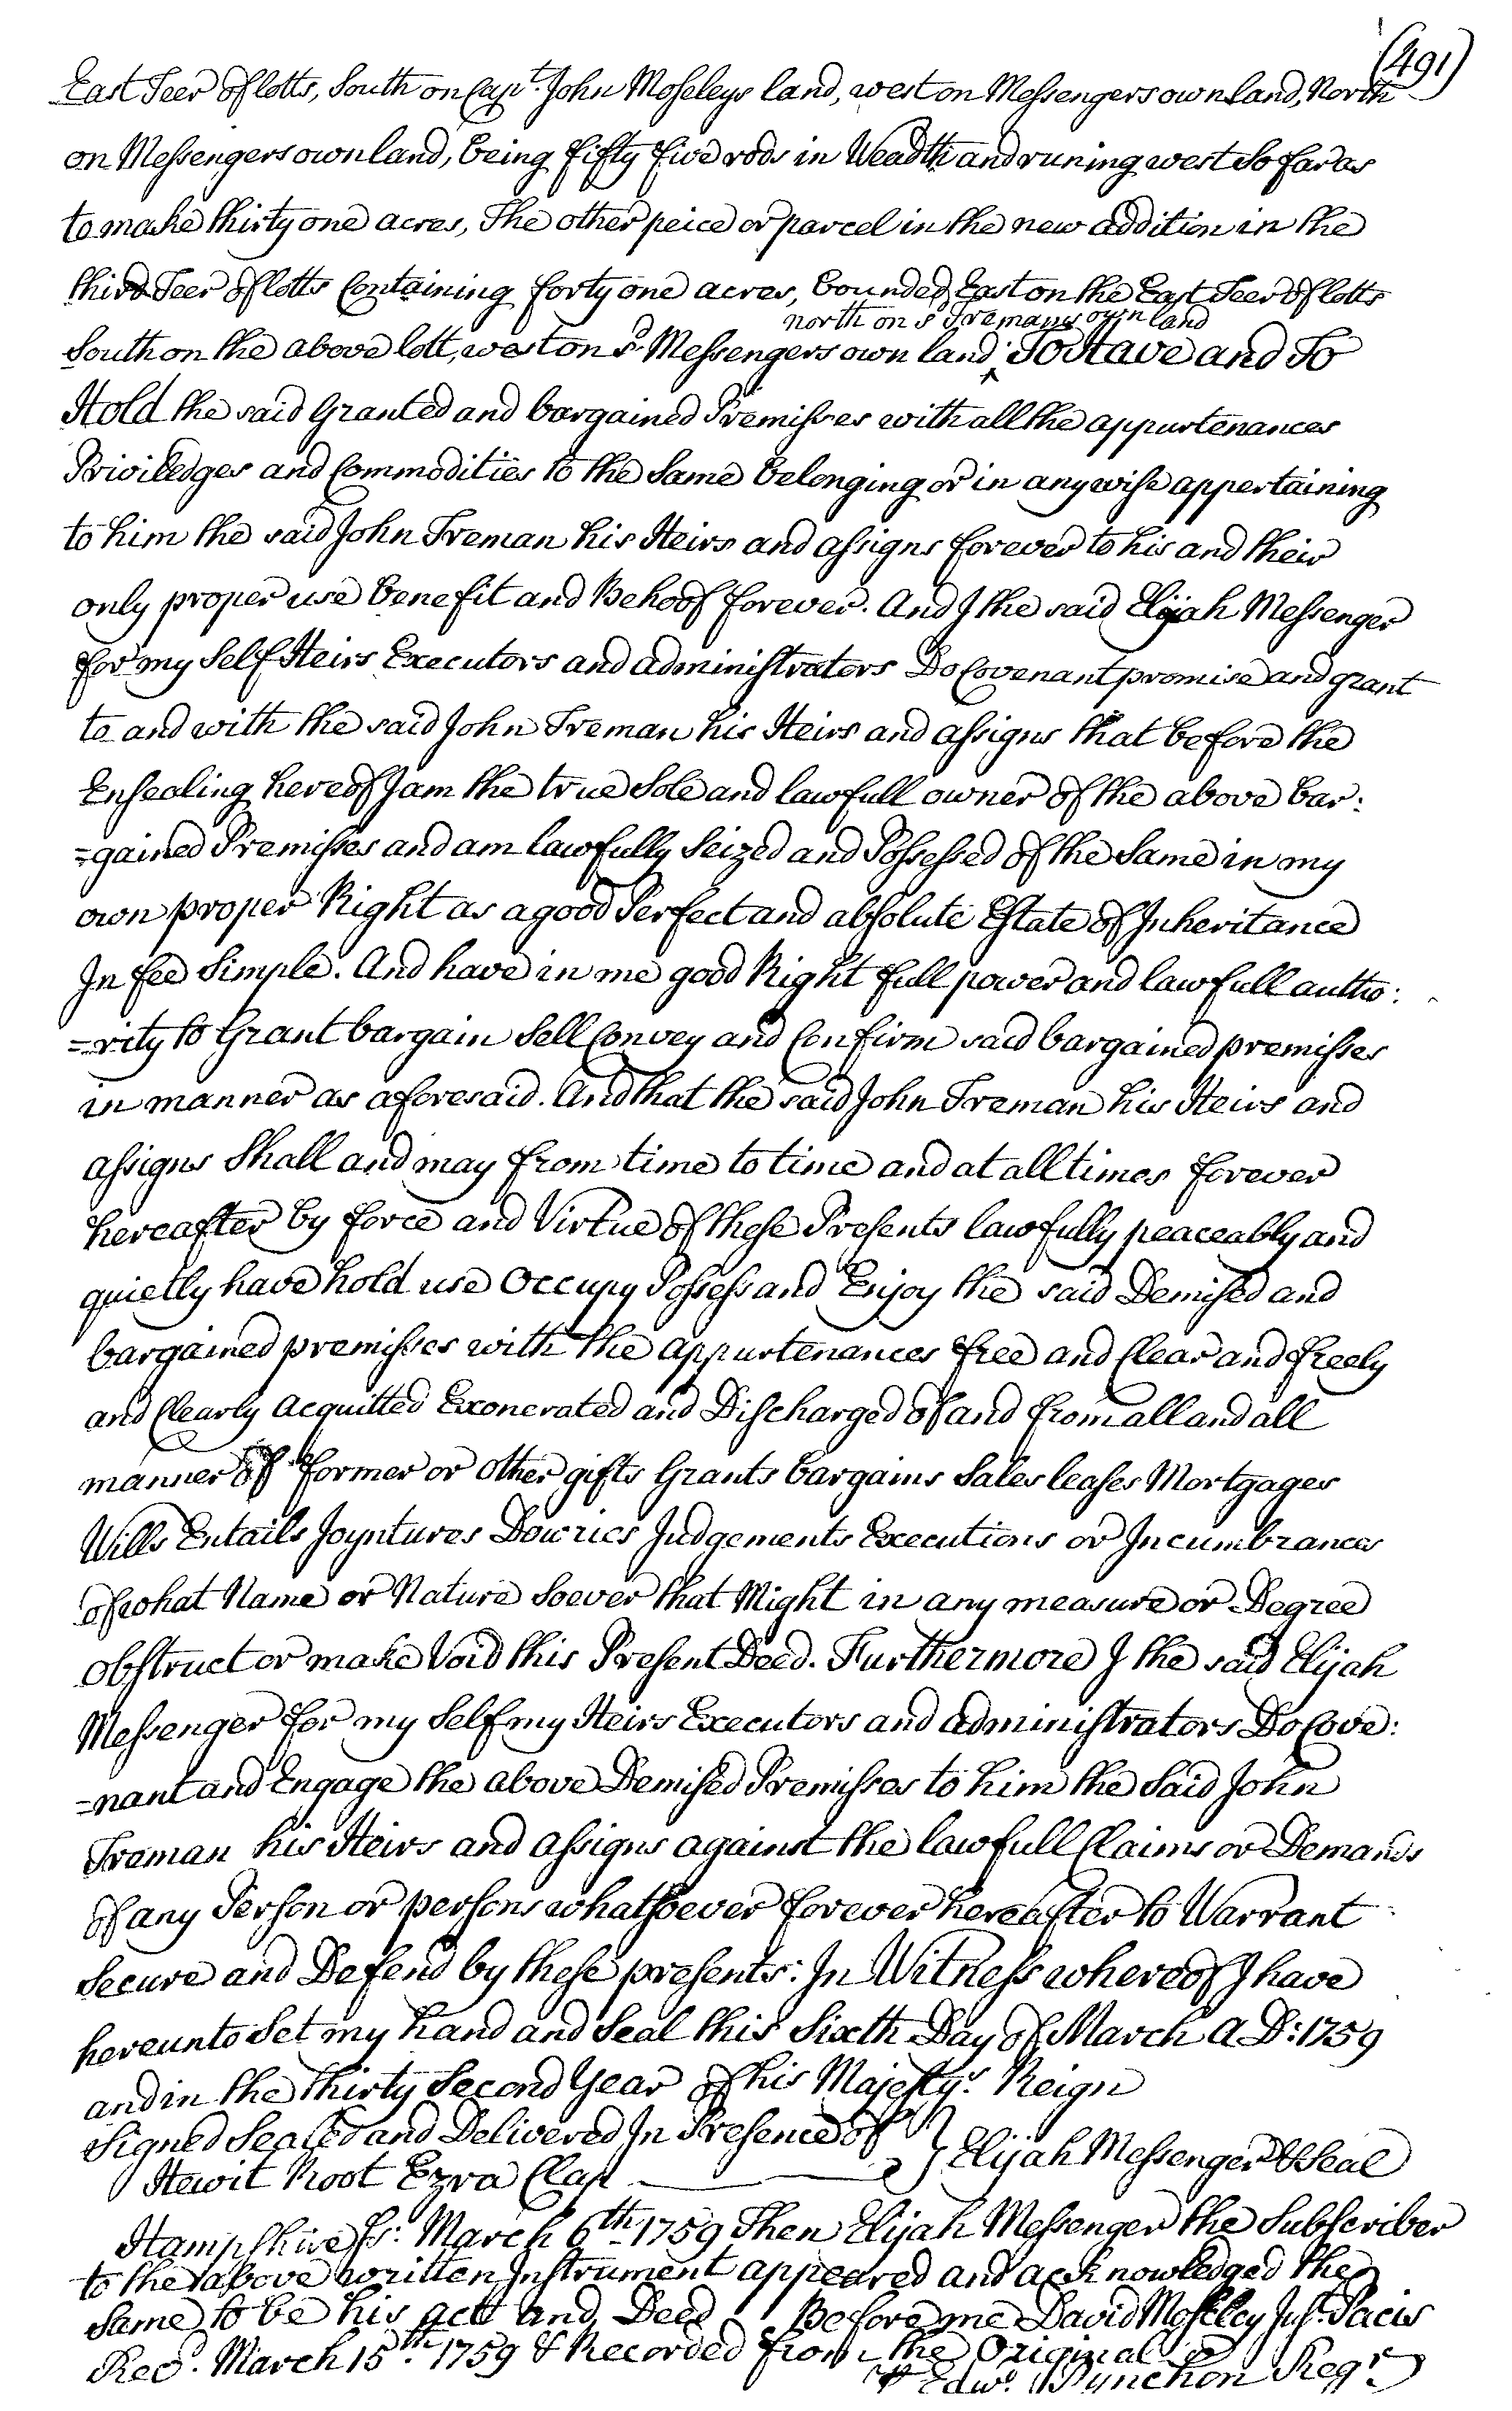 (491)
East Teer of lotts, South on Capt. John Moseleys land, west on Messengers own land, North
on Messengers own land, being fifty five rods in Weadth and runing west So far as
to make thirty one acres, The other peice or parcel in the new addition in the
third Teer of lotts Containing forty one acres, bounded East on the East Teer of lotts
north on sd Tremans own land
South on the above lott, west on sd. Messengers own land ‸ To Have and To
Hold the said Granted and bargained Premisses with all the appurtenances
Priviledges and Commodities to the Same belonging or in any wise appertaining
to him the said John Treman his Heirs and assigns forever to his and their
only proper use benefit and Behoof forever. And I the said Elijah Messenger
for my Self Heirs Executors and administrators Do Covenant promise and grant
to and with the said John Treman his Heirs and assigns that before the
Ensealing hereof I am the true Sole and lawfull owner of the above bar:
=gained Premisses and am lawfully Seized and Possessed of the Same in my
own proper Right as a good Perfect and absolute Estate of Inheritance
In fee Simple. And have in me good Right full power and lawfull autho:
=rity to Grant bargain Sell Convey and Confirm said bargained premisses
in manner as aforesaid. And that the said John Treman his Heirs and
assigns Shall and may from time to time and at all times forever
hereafter by force and Virtue of these Presents lawfully peaceably and
quietly have hold use Occupy Possess and Enjoy the said Demised and
bargained premisses with the appurtenances free and Clear and freely
and Clearly acquitted Exonerated and Discharged of and from all and all
manner of former or other gifts Grants bargains Sales leases Mortgages
Wills Entails Joyntures Dowries Judgements Executions or Incumbrances
of what Name or Nature Soever that Might in any measure or Degree
obstruct or make Void this Present Deed. Furthermore I the said Elijah
Messenger for my Self my Heirs Executors and administrators Do Cove:
=nant and Engage the above Demised Premisses to him the Said John
Treman his Heirs and assigns against the lawfull Claims or Demands
of any Person or persons whatsoever forever hereafter to Warrant
Secure and Defend by these presents: In Witness whereof I have
hereunto Set my hand and Seal this Sixth Day of March A D: 1759
and in the thirty Second Year of his Majestys. Reign
Signed Sealed and Delivered In Presence of } Elijah Messenger & Seal
Hewit Root Ezra Clap
Hampshire Ss. March 6th 1759 Then Elijah Messenger the Subscriber
to the above written Instrument appeared and acknowledged the
Same to be his act and Deed. Before me David Moseley Just. Pacis
Recd. March 15th. 1759 & Recorded from the Original
Edwd. Pynchon Regr.